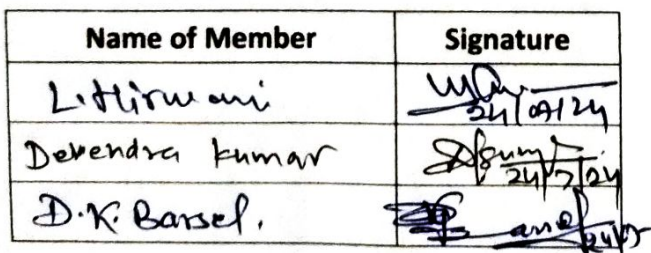 Name of Member Signature
L. Hirwani 24/07/24
Devendra Kumar 24/7/24
D.K. Barsel.